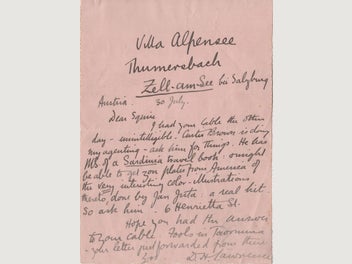 Villa Alpensee
Thumersbach
Zell-am-See bei Salzburg
Austria. 30 July.
Dear Squire
I had your cable the other
day - unintelligible. Curtis Brown is doing
my agenting - ask him for things. He has
MS. of a Sardinia travel book: ought
be able to get you plates from America of
the very interesting color-illustrations
thereto, done by Jan Juta: a real hit.
So ask him. 6 Henrietta St.
Hope you had the answer
to your cable. Fools in Taormina
- your letter just forwarded from there
D. H. Lawrence